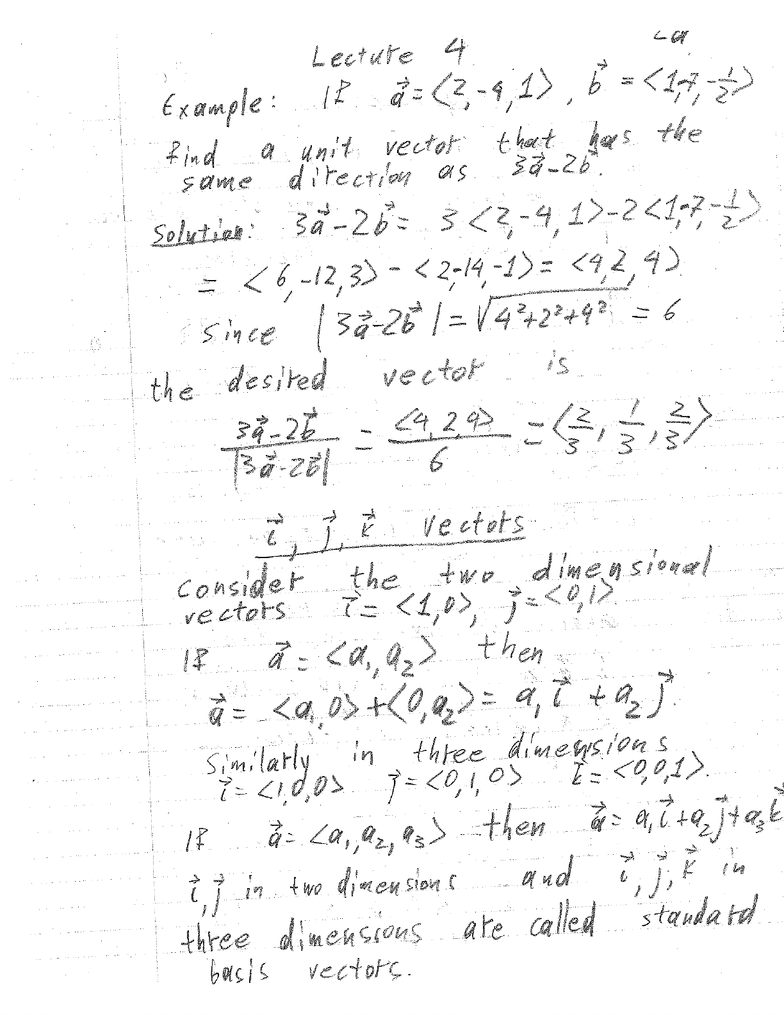 ∠a
Lecture 4
Example: If a⃗ = <2,-4,1>, b⃗ = <1,-7,-1/2>
find a unit vector that has the
same direction as 3a⃗-2b⃗.
Solution: 3a⃗-2b⃗ = 3<2,-4,1>-2<1,-7,-1/2>
= <6,-12,3> - <2,-14,-1> = <4,2,4>
Since |3a⃗-2b⃗| = √(4²+2²+4²) = 6
the desired vector is
(3a⃗-2b⃗)/|3a⃗-2b⃗| = <4,2,4>/6 = <2/3, 1/3, 2/3>
i⃗, j⃗, k⃗ vectors
Consider the two dimensional
vectors i⃗ = <1,0>, j⃗ = <0,1>
If a⃗ = <a₁,a₂> then
a⃗ = <a₁,0>+<0,a₂> = a₁i⃗ + a₂j⃗
Similarly in three dimensions
i⃗ = <1,0,0> j⃗ = <0,1,0> k⃗ = <0,0,1>.
If a⃗ = <a₁,a₂,a₃> then a⃗ = a₁i⃗+a₂j⃗+a₃k⃗
i⃗,j⃗ in two dimensions and i⃗,j⃗,k⃗ in
three dimensions are called standard
basis vectors.